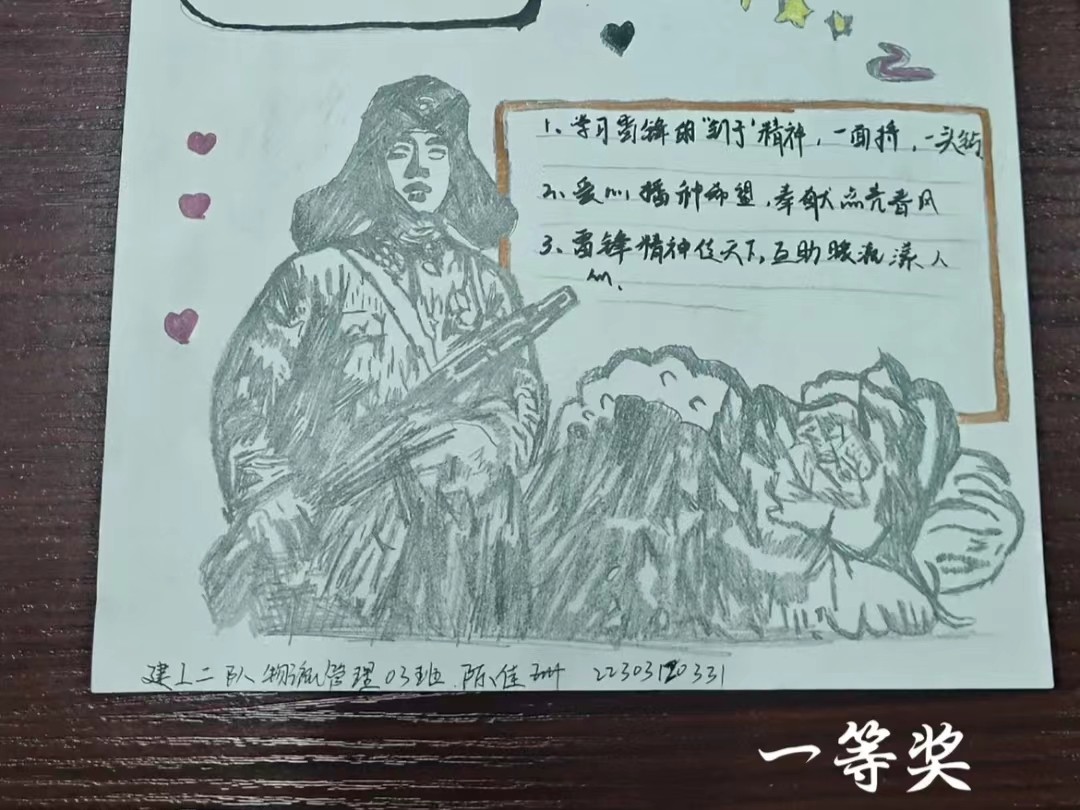 1、学习雷锋的"钉子"精神，一面挤，一头钻
2、爱心播种希望，奉献点亮春风
3、雷锋精神传天下，互助暖流漾人
间.
建工二队 物流管理03班 陈佳珊 22303120331
一等奖